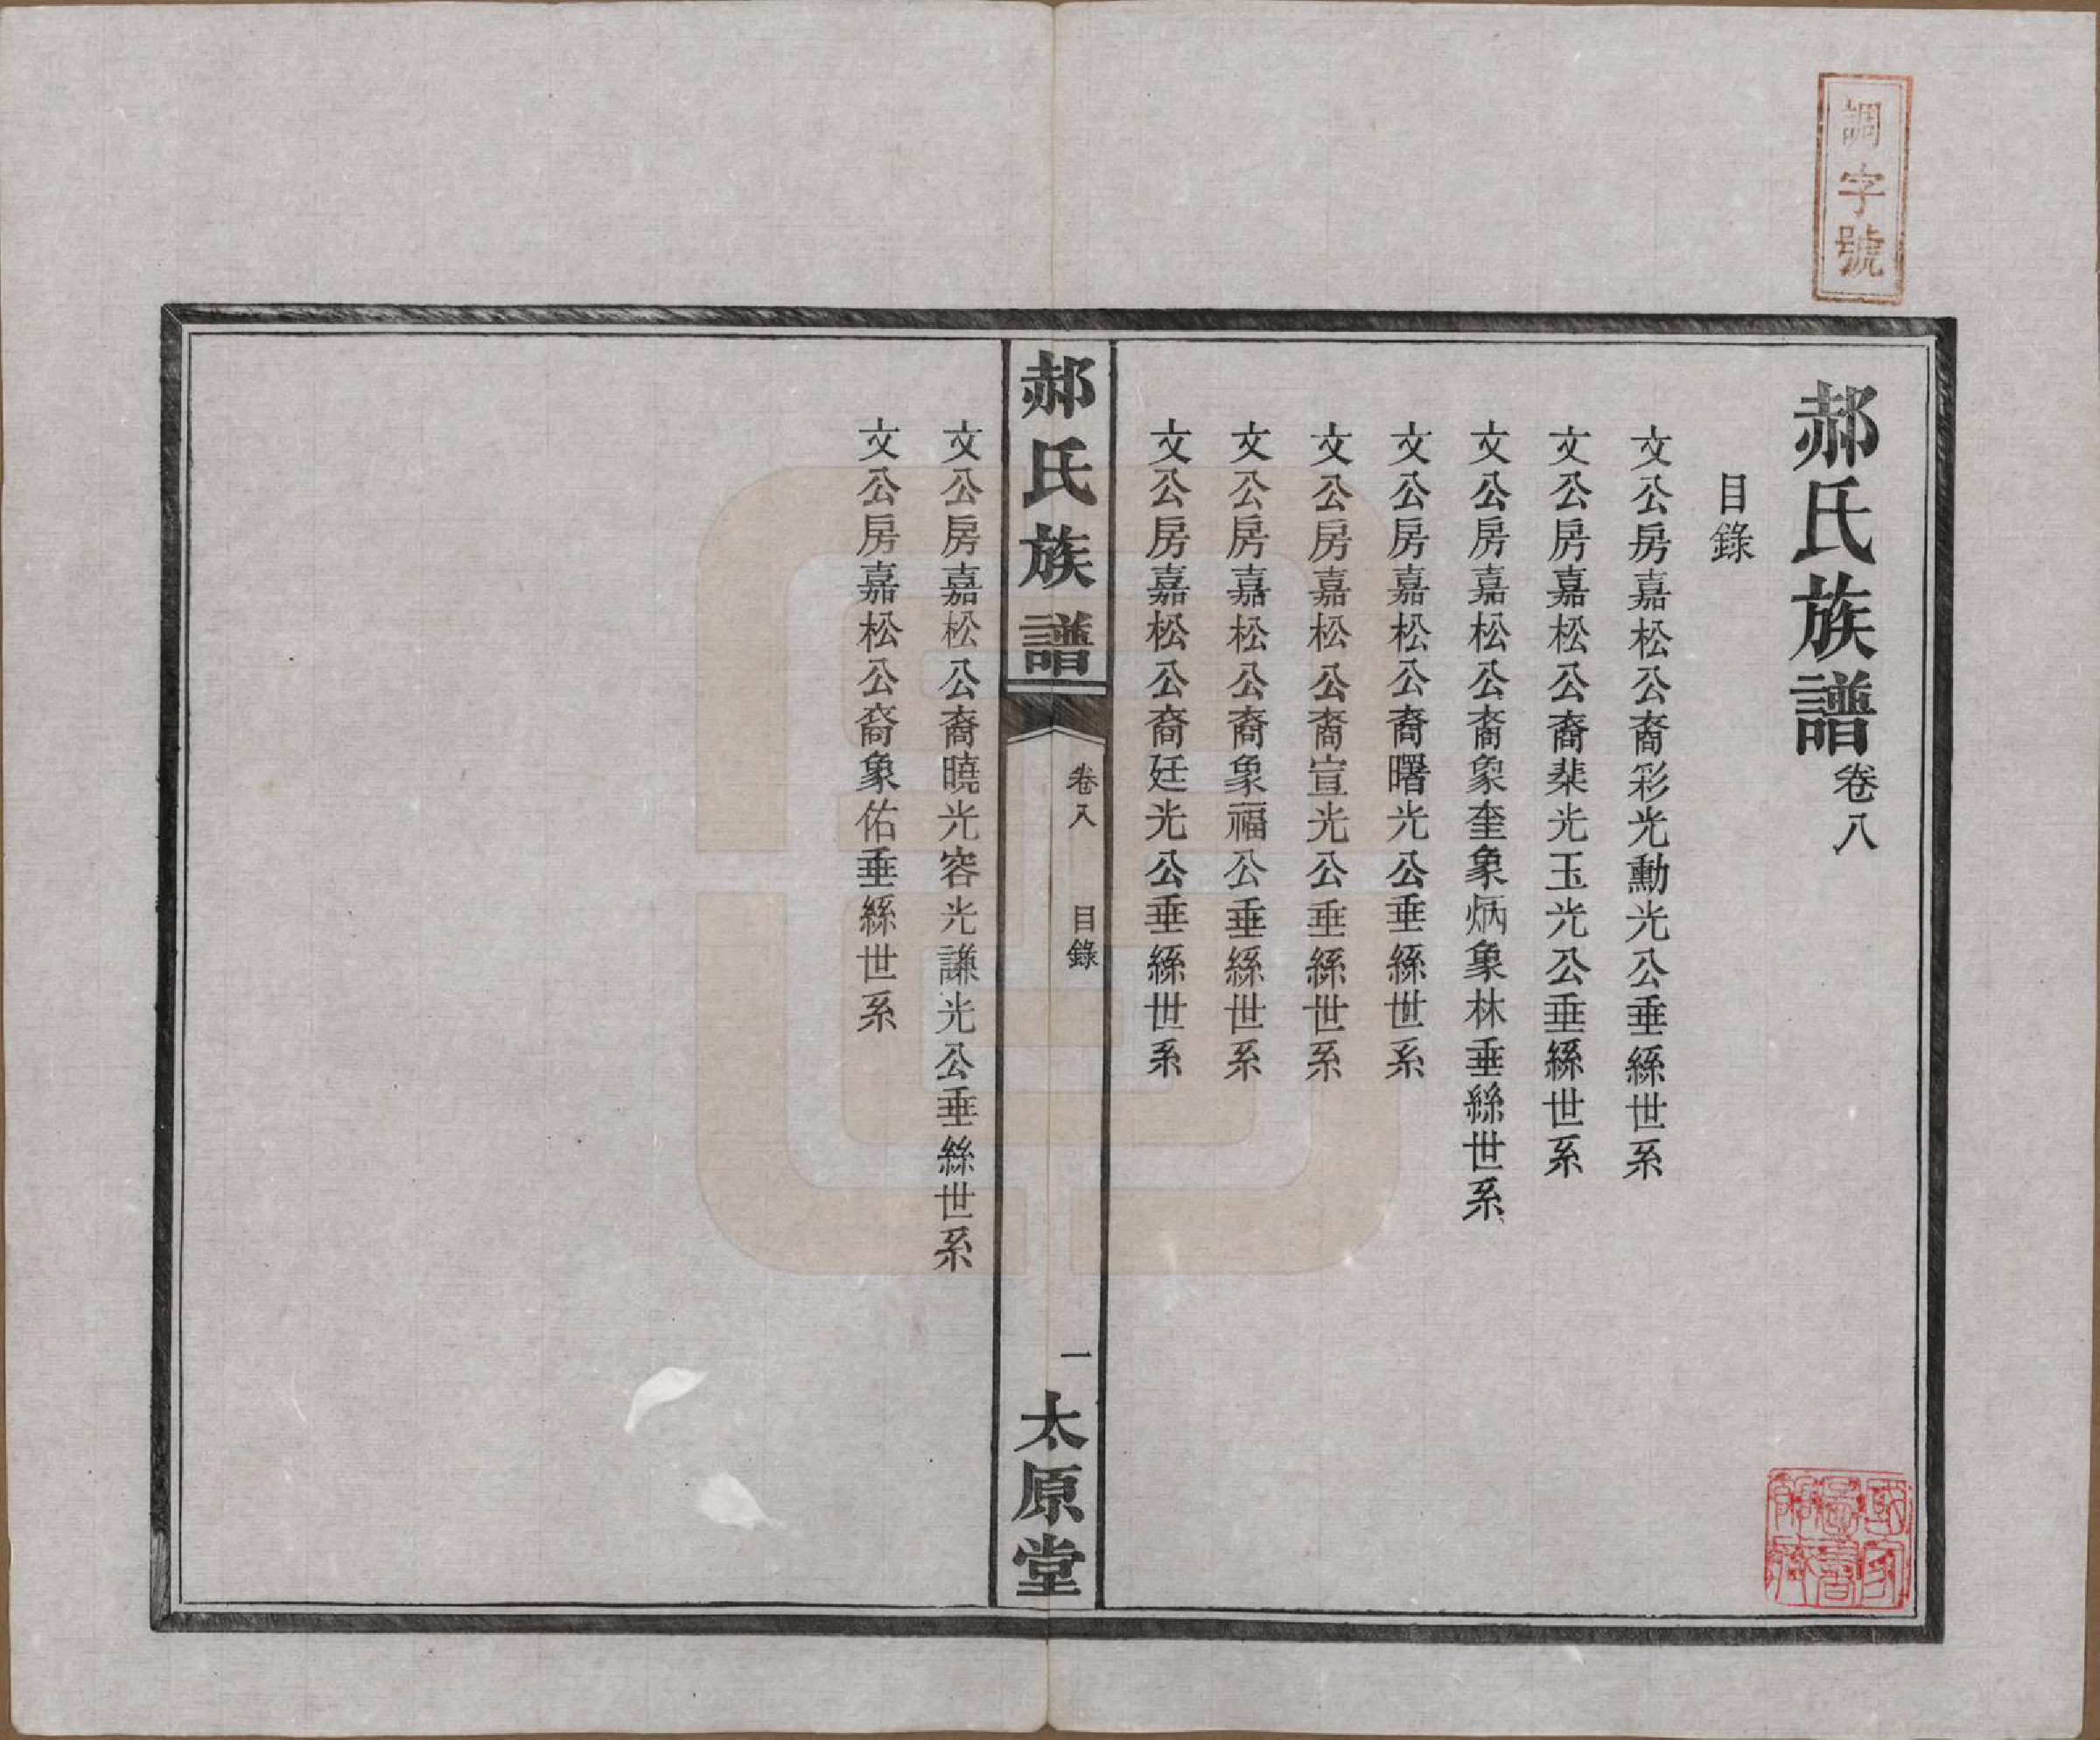 調字號
郝氏族譜卷八
目錄
文公房嘉松公裔彩光勳光公垂絲世系
文公房嘉松公裔棐光玉光公垂絲世系
文公房嘉松公裔象奎象炳象林垂絲世系
文公房嘉松公裔曙光公垂絲世系
文公房嘉松公裔宣光公垂絲世系
文公房嘉松公裔象福公垂絲世系
文公房嘉松公裔廷光公垂絲世系
郝氏族譜
卷八
目錄
一
太原堂
文公房嘉松公裔曉光容光謙光公垂絲世系
文公房嘉松公裔象佑垂絲世系
國家圖書館藏